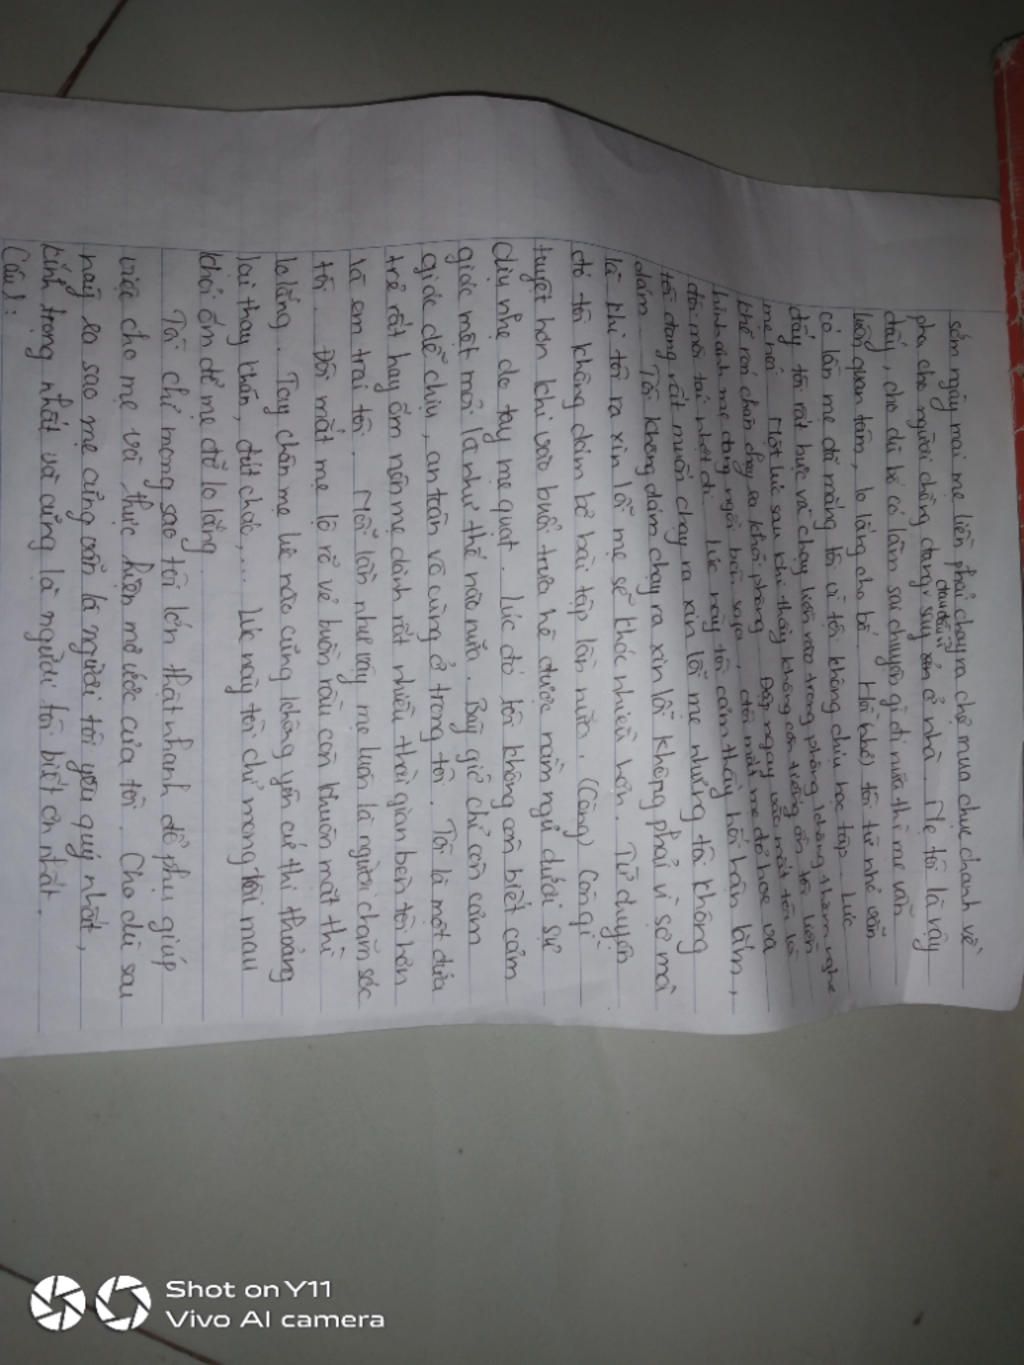 sớm ngày mai mẹ liền phải chạy ra chợ mua chục chanh về
pha cho người chồng đang say đau đầu ở nhà. Mẹ tôi là vậy
đấy, cho dù bố có lầm sai chuyện gì đi nữa thì mẹ vẫn
luôn quan tâm, lo lắng cho bố. Hồi nhỏ, tôi từ nhỏ vẫn
có lần mẹ đã mắng tôi vì tội không chịu học tập. Lúc
đấy tôi rất bực và chạy luôn vào trong phòng không thèm nghe
mẹ nói. Một lúc sau khi thấy không còn tiếng ồn tôi liền
khẽ ran chân chạy ra khỏi phòng. Đập ngay vào mắt tôi là
hình ảnh mẹ đang ngồi bên sopa, đôi mắt mẹ đỏ hoe và
đôi môi tái nhợt đi. Lúc này tôi cảm thấy hối hận lắm,
tôi đang rất muốn chạy ra xin lỗi mẹ nhưng tôi không
dám. Tôi không dám chạy ra xin lỗi không phải vì sợ mà
là khi tôi ra xin lỗi mẹ sẽ khóc nhiều hơn. Từ chuyện
đó tôi không dám bỏ bài tập lần nữa. (Còng) Còn gì
tuyệt hơn khi vào buổi trưa hè được nằm ngủ dưới sự
dịu nhẹ do tay mẹ quạt. Lúc đó tôi không còn biết cảm
giác mệt mỏi là như thế nào nữa. Bây giờ chỉ còn cảm
giác dễ chịu, an toàn vô cùng ở trong tôi. Tôi là một đứa
trẻ rất hay ốm nên mẹ dành rất nhiều thời gian bên tôi hơn
là em trai tôi. Mỗi lần như vậy mẹ luôn là người chăm sóc
tôi. Đôi mắt mẹ lộ rõ vẻ buồn rầu còn khuôn mặt thì
lo lắng. Tay chân mẹ lúc nào cũng không yên cứ thi thoảng
lại thay khăn, đút cháo,... Lúc này tôi chỉ mong tôi mau
khỏi ốm để mẹ đỡ lo lắng
Tôi chỉ mong sao tôi lớn thật nhanh để phụ giúp
việc cho mẹ và thực hiện mơ ước của tôi. Cho dù sau
này ra sao mẹ cũng vẫn là người tôi yêu quý nhất,
kính trọng nhất và cũng là người tôi biết ơn nhất.
Câu 1:
Shot on Y11
Vivo AI camera